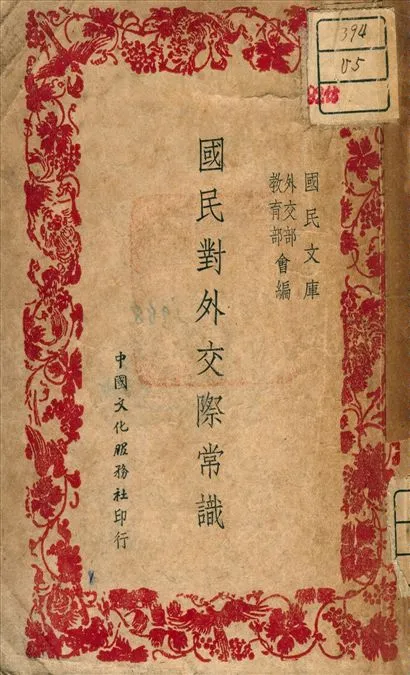 國民文庫
外交部
教育部
會編
國民對外交際常識
中國文化服務社印行
394